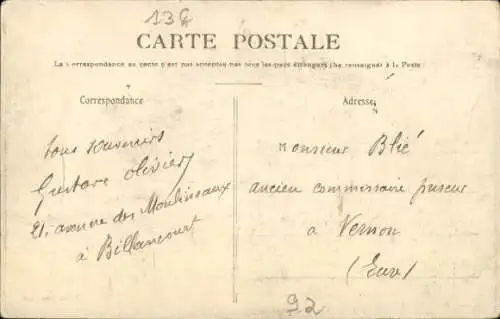 136
CARTE POSTALE
La Correspondance au recto n'est pas acceptée par tous les pays étrangers (Se renseigner à la Poste)
Correspondance
Adresse
bons souvenirs
Gustave Olivier
21, avenue des Moulineaux
à Billancourt
Monsieur Blié
ancien commissaire priseur
à Vernon
(Eure)
92